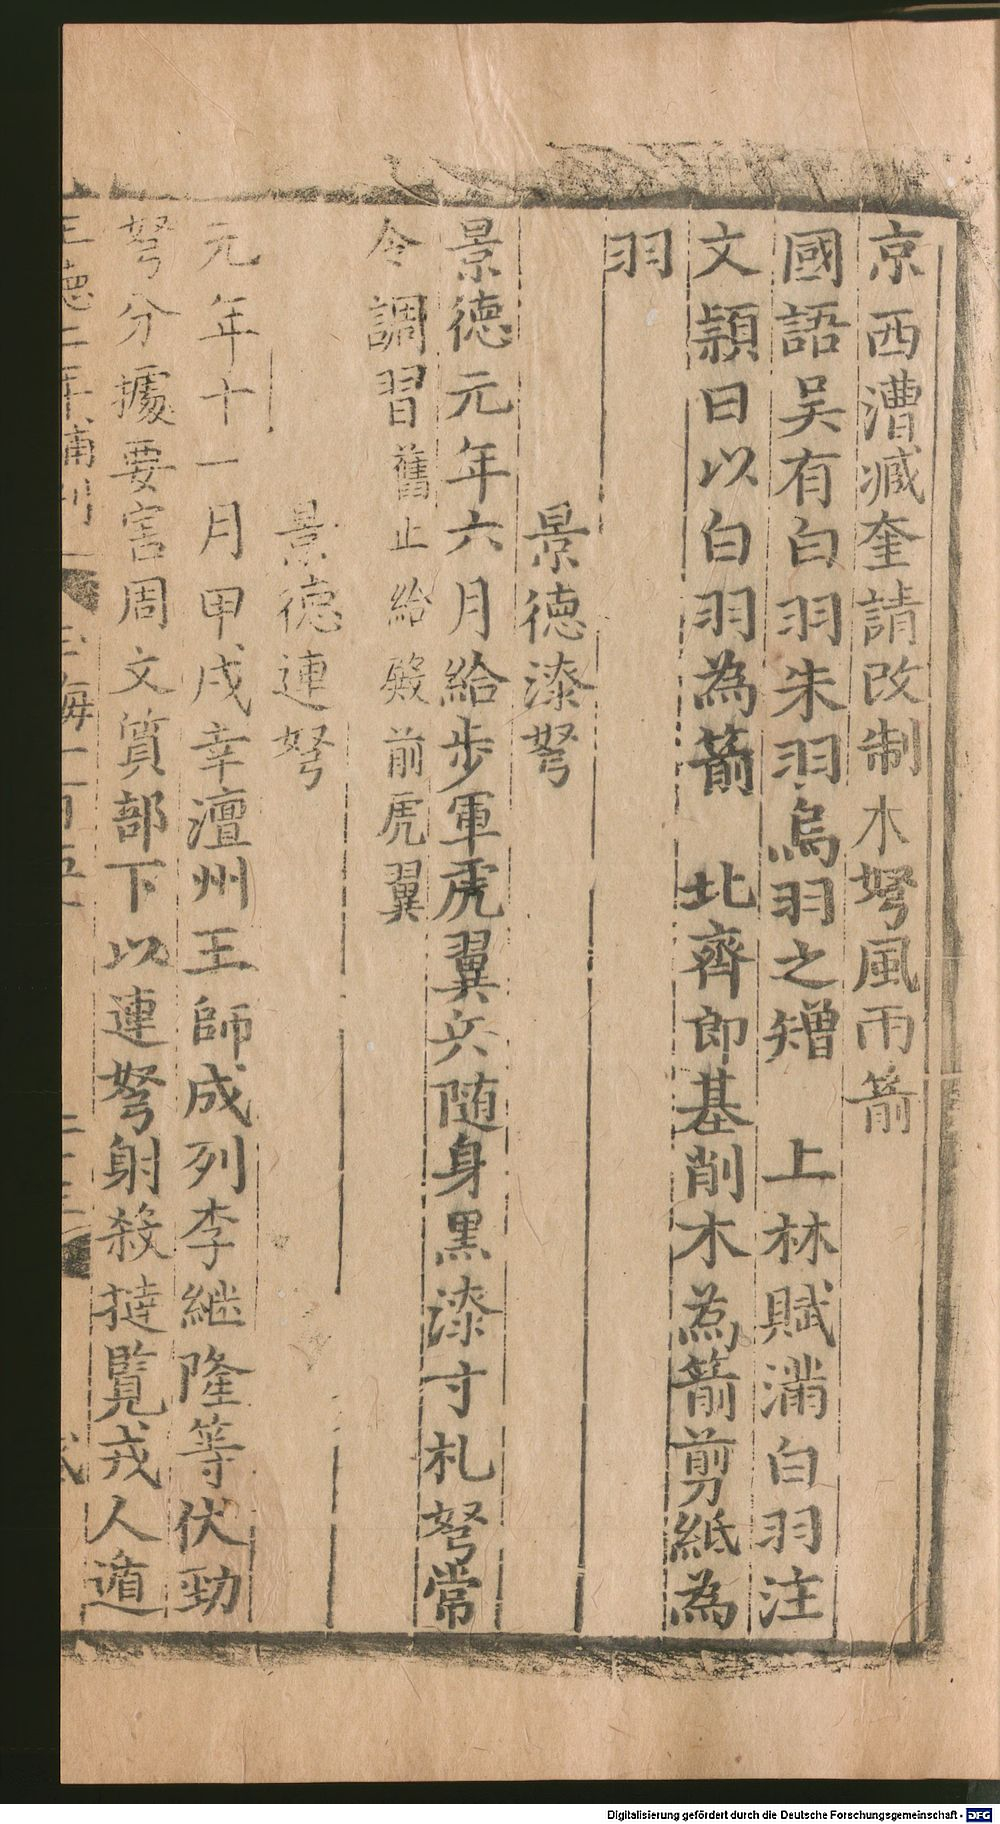 京西漕臧奎請改制木弩風雨箭
國語吴有白羽朱羽烏羽之矰　上林賦滿白羽注
文頴曰以白羽為箭　北齊郎基削木為箭剪紙為
羽
景徳漆弩
景徳元年六月給步軍虎翼兵随身黒漆寸札弩常
令調習舊止給殿前虎翼
景徳連弩
元年十一月甲戌幸澶州王師成列李継隆等伏勁
弩分據要害周文質部下以連弩射殺撻覽戎人遁
正德二年補刊
Digitalisierung gefördert durch die Deutsche Forschungsgemeinschaft - DFG